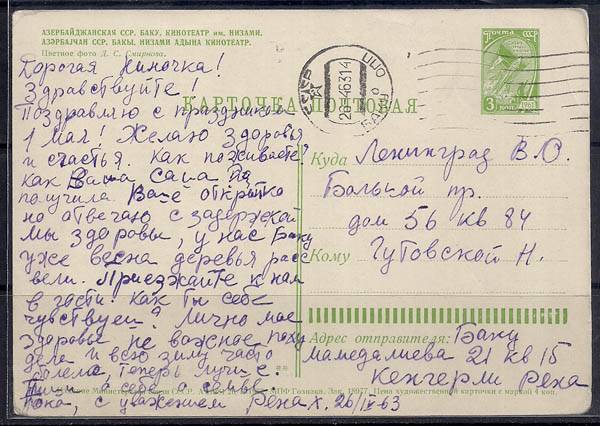 АЗЕРБАЙДЖАНСКАЯ ССР. БАКУ. КИНОТЕАТР им. НИЗАМИ.
АЗӘРБАЈҸАН ССР. БАКЫ. НИЗАМИ АДЫНА КИНОТЕАТР.
Цветное фото Л. С. Смирнова.
КАРТОЧКА ПОЧТОВАЯ
ПОЧТА СССР
3 КОП.
Дорогая Ниночка!
Здравствуйте!
Поздравляю с праздником
1 Мая! Желаю здоровья
и счастья. Как поживаете?
как Ваша Саша Я
получила Ваше открытка
но отвечаю с задержкой
мы здоровы, у нас Баку
уже весна деревья расс
вели. Приезжайте к нам
в гости. Как ты себе
чувствуеш? Лично мое
здоровье не важное поху
дела и всю зиму часто
болела, теперь лучше.
Пиши о себе о семье.
Пока, с уважением Рена К. 20/IV-63
Куда Ленинград В.О.
Большой пр.
дом 56 кв 84
Кому Гутовской Н.
Адрес отправителя: Баку
Мамедалиева 21 кв 15
Кенгерли Рена
МПФ Гознака. Зак. 18977. Цена художественной карточки с маркой 4 коп.